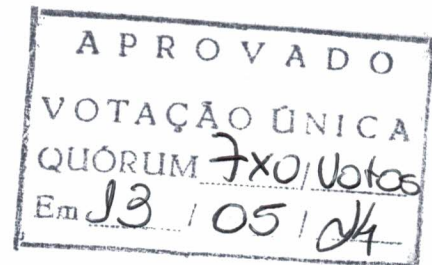 APROVADO
VOTAÇÃO ÚNICA
QUÓRUM 7x0/Votos
Em 13 / 05 / 24